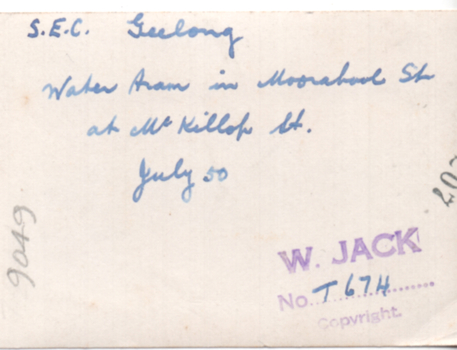 S.E.C. Geelong
Water tram in Moorabool St
at McKillop St.
July 50
9049
W. JACK
No. T 674
Copyright.